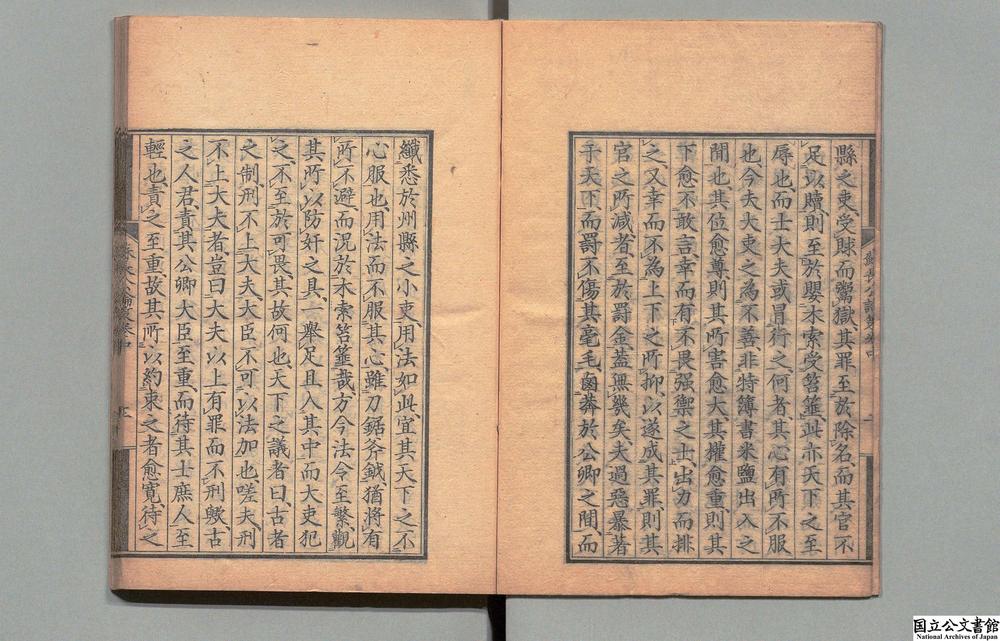 縣之吏受賕而鬻獄其罪至於除名而其官不
足以贖則至於嬰木索受笞箠此亦天下之至
辱也而士大夫或冒行之何者其心有所不服
也今夫大吏之為不善非特簿書米鹽出入之
間也其位愈尊則其所害愈大其權愈重則其
下愈不敢言幸而有不畏强禦之士出力而排
之又幸而不為上下之所抑以遂成其罪則其
官之所減者至於罰金蓋無幾矣夫過惡暴著
于天下而罰不傷其毫毛鹵莽於公卿之間而
纖悉於州縣之小吏用法如此宜其天下之不
心服也用法而不服其心雖刀鋸斧鉞猶將有
所不避而況於木索笞箠哉方今法令至繁觀
其所以防奸之具一舉足且入其中而大吏犯
之不至於可畏其故何也天下之議者曰古者
之制刑不上大夫大臣不可以法加也嗟夫刑
不上大夫者豈曰大夫以上有罪而不刑歟古
之人君責其公卿大臣至重而待其士庶人至
輕也責之至重故其所以約束之者愈寬待之
国立公文書館
National Archives of Japan